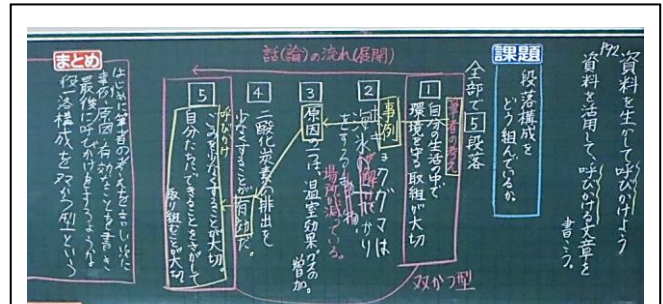 P92
資料を生かして呼びかけよう
資料を活用して、呼びかける文章を
書こう。
課題
段落構成を
どう組んでいるか
全部で5段落
話(論)の流れ(展開)
1
筆者の考え
自分の生活の中で
環境を守る取組が大切
2
事例
ホッキョクグマは
氷が解け
場所が減っている。
3
原因の一つは、温室効果ガスの
増加。
4
二酸化炭素の排出を
少なくすることが有効だ。
5
呼びかけ
このを少なくすることが大切。
自分たちでできることをさがして
取り組むことが大切。
双かつ型
まとめ
はじめに筆者の考えを言い、次に
事例、原因、有効なことを書き
最後に呼びかけをするような
段落構成を双かつ型という